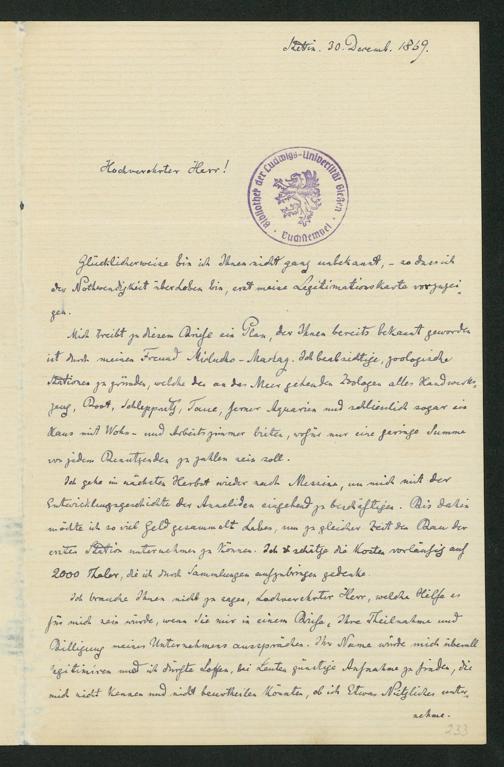 Stettin. 30. Decemb. 1869.
Hochverehrter Herr!
Bibliothek der Ludwigs-Universität Gießen
Buchstempel
Glücklicherweise bin ich Ihnen nicht ganz unbekannt, – so dass ich
der Nothwendigkeit überhoben bin, erst meine Legitimationskarte vorzuzei-
gen.
Mich treibt zu diesem Briefe ein Plan, der Ihnen bereits bekannt geworden
ist durch meinen Freund Miklucho-Maclay. Ich beabsichtige, zoologische
Stationen zu gründen, welche den an das Meer gehenden Zoologen alles Handwerks-
zeug, Boot, Schleppnetz, Taue, ferner Aquarien und schliesslich sogar ein
Haus mit Wohn- und Arbeitszimmer bieten, wofür nur eine geringe Summe
von jedem Benutzenden zu zahlen sein soll.
Ich gehe im nächsten Herbst wieder nach Messina, um mich mit der
Entwicklungsgeschichte der Anneliden eingehend zu beschäftigen. Bis dahin
möchte ich so viel Geld gesammelt haben, um zu gleicher Zeit den Bau der
ersten Station unternehmen zu können. Ich schätze die Kosten vorläufig auf
2000 Thaler, die ich durch Sammlungen aufzubringen gedenke.
Ich brauche Ihnen nicht zu sagen, hochverehrter Herr, welche Hilfe es
für mich sein würde, wenn Sie mir in einem Briefe, Ihre Theilnahme und
Billigung meines Unternehmens aussprächen. Ihr Name würde mich überall
legitimiren und ich dürfte hoffen, bei Leuten günstige Aufnahme zu finden, die
mich nicht kennen und nicht beurtheilen könnten, ob ich Etwas Nützliches unter-
nehme.
233